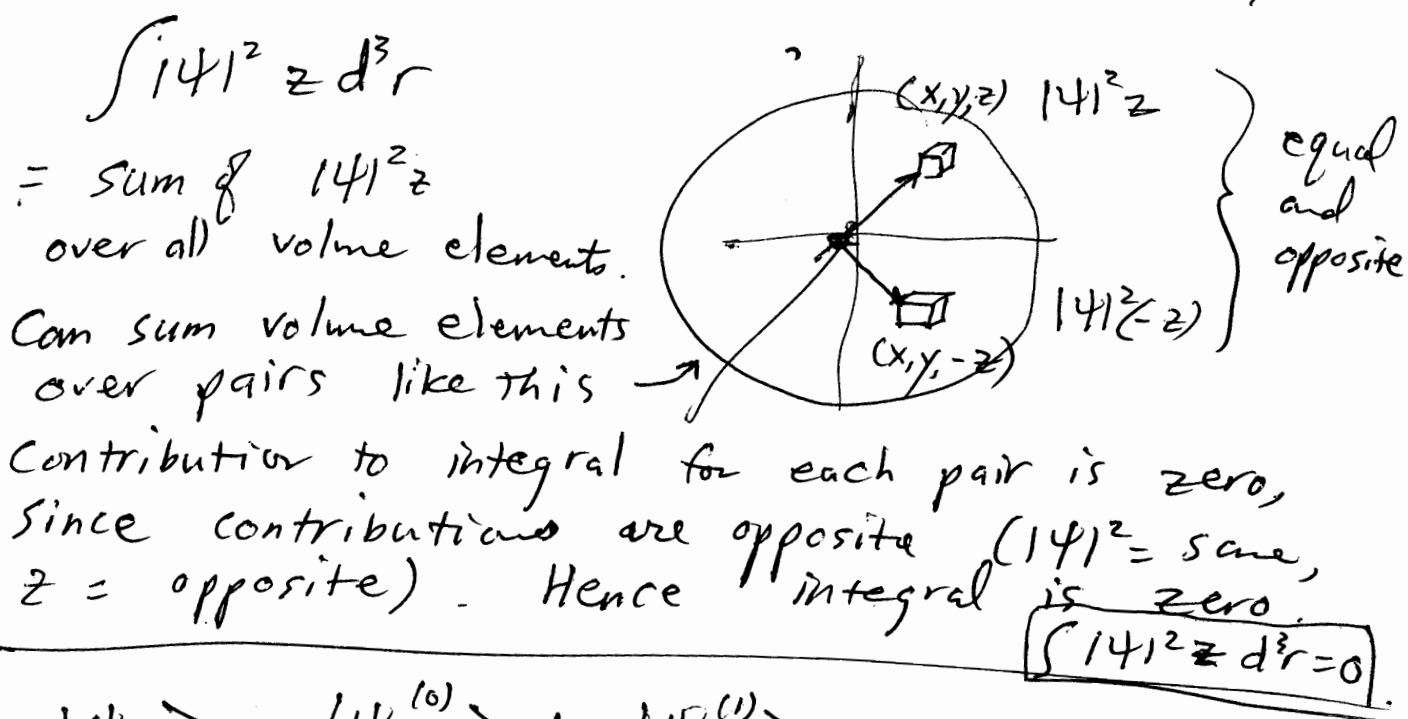 ∫|ψ|² z d³r
= sum of |ψ|²z
over all volume elements.
Can sum volume elements
over pairs like this →
(x,y,z) |ψ|²z
(x,y,-z) |ψ|²(-z)
equal
and
opposite
Contribution to integral for each pair is zero,
since contributions are opposite (|ψ|² = same,
z = opposite). Hence integral is zero.
∫|ψ|² z d³r = 0